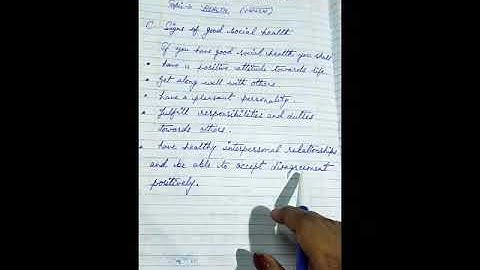 Topic:- HEALTH
C. Signs of good social health
If you have good social health, you shall
• have a positive attitude towards life.
• get along well with others
• have a pleasant personality.
• fulfill responsibilities and duties
towards others.
• have healthy interpersonal relationships
and be able to accept disagreement
positively.